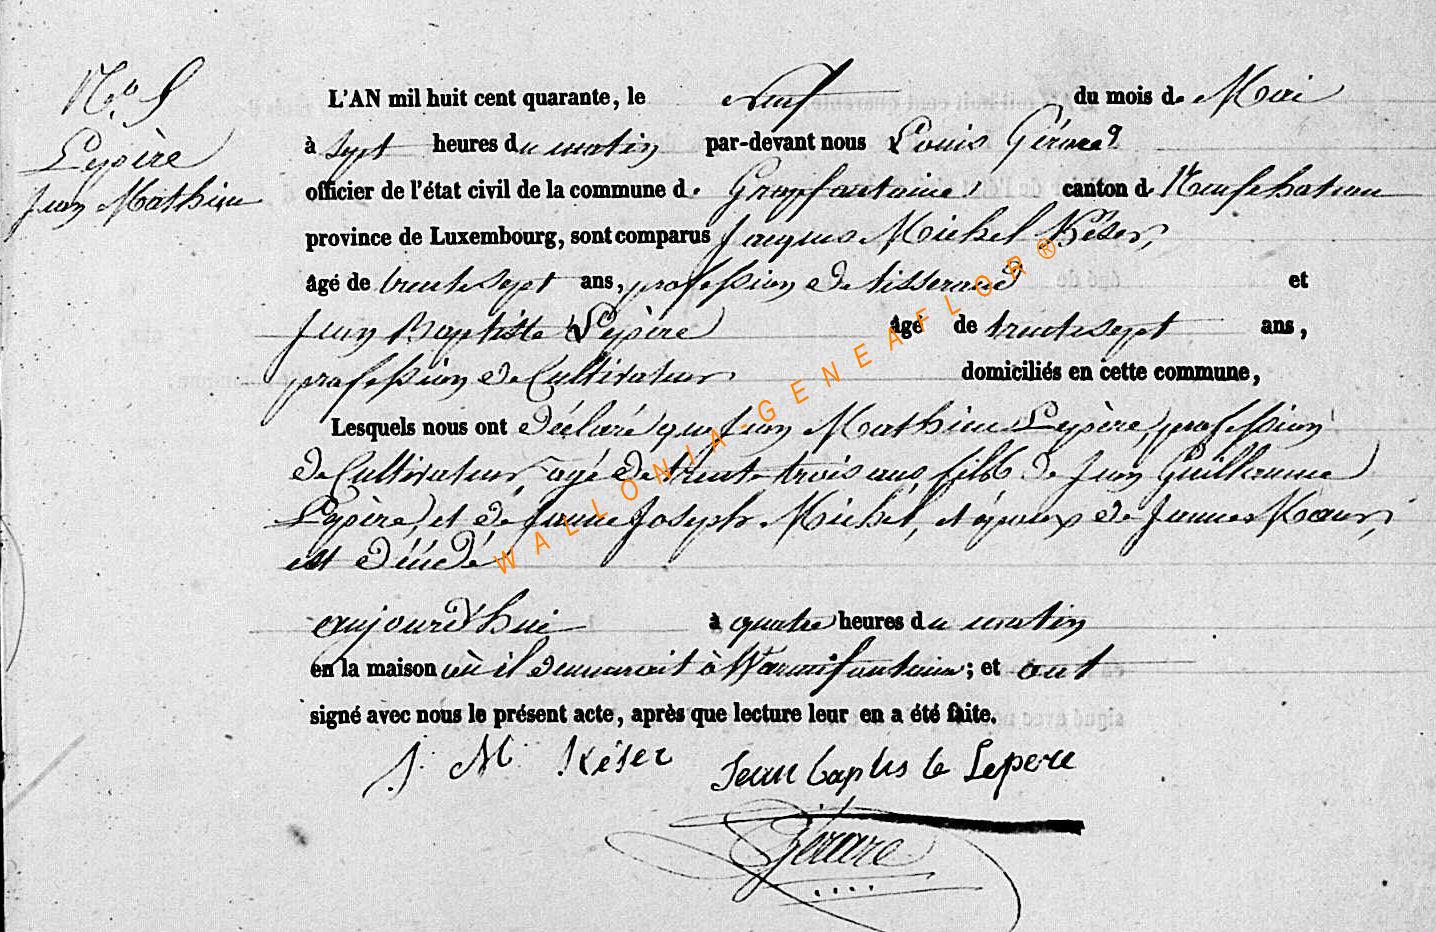 N.º 5
Lepère
Jean Mathieu
L'AN mil huit cent quarante, le neuf du mois de Mai
à sept heures du matin par-devant nous Louis Gérard
officier de l'état civil de la commune de Grapfontaine, canton de Neufchateau
province de Luxembourg, sont comparus Jacques Michel Késer,
âgé de trente sept ans, profession de tisserand et
Jean Baptiste Lepère âgé de trente sept ans,
profession de Cultivateur domiciliés en cette commune,
Lesquels nous ont déclaré que Jean Mathieu Lepère, profession
de Cultivateur, agé de trente trois ans, fils de Jean Guillaume
Lepère, et de Jeanne Joseph Michel, et époux de Jeanne
est décédé
aujourd'hui à quatre heures du matin
en la maison où il demeurait à Warmifontaine; et ont
signé avec nous le présent acte, après que lecture leur en a été faite.
J. M. Késer Jean baptis te Lepere
Gérard
WALLONIA-GENEAFLOR®